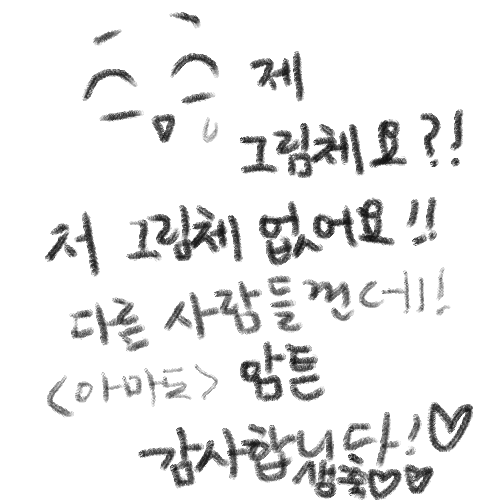 제
그림체요?!
저 그림체 없어요!!
다른 사람들껀데!
<아마도> 암튼
감사합니다!♡
샘플♡♡